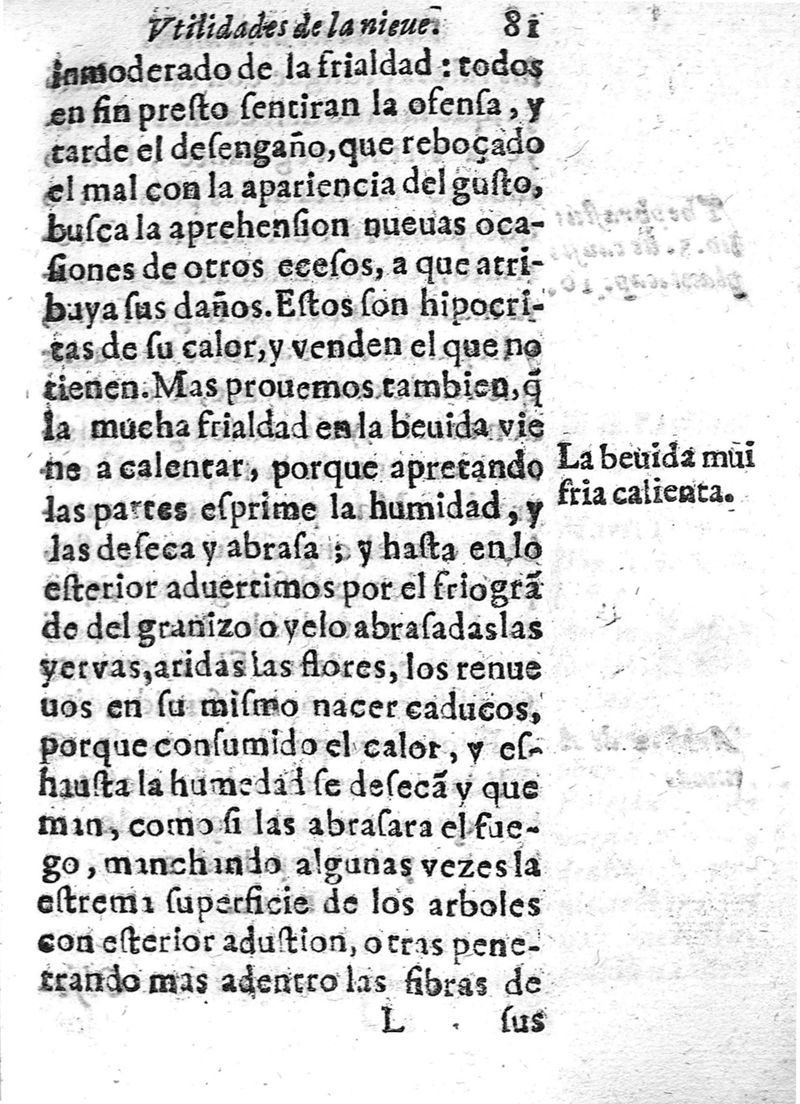 Vtilidades de la nieue. 81
inmoderado de la frialdad : todos
en fin presto ſentiran la ofenſa, y
tarde el deſengaño, que reboçado
el mal con la apariencia del guſto,
buſca la aprehenſion nueuas oca-
ſiones de otros eceſos, a que atri-
buya ſus daños. Eſtos ſon hipocri-
tas de ſu calor, y venden el que no
tienen. Mas prouemos tambien, q̃
la mucha frialdad en la beuida vie
ne a calentar, porque apretando
las partes eſprime la humidad, y
las deſeca y abraſa ; y haſta en lo
eſterior aduertimos por el frio grã
de del granizo o yelo abraſadas las
yervas, aridas las flores, los renue
uos en ſu miſmo nacer caducos,
porque conſumido el calor, y eſ-
hauſta la humedad ſe deſecã y que
man, como ſi las abraſara el fue-
go, manchando algunas vezes la
eſtrema ſuperficie de los arboles
con eſterior aduſtion, otras pene-
trando mas adentro las fibras de
L ſus
La beuida mui
fria calienta.